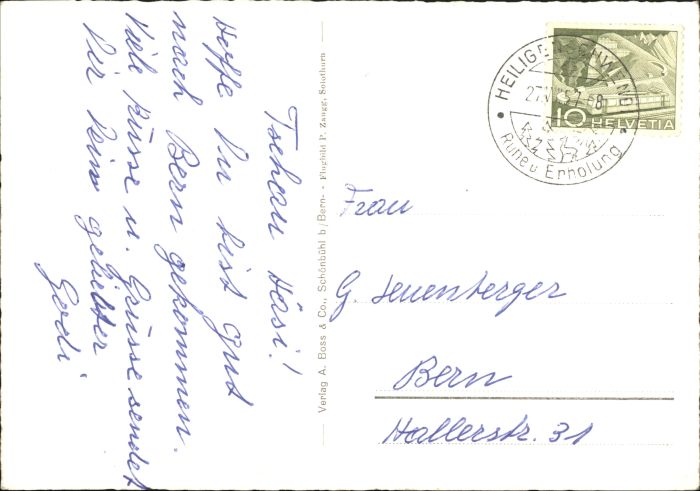 Tschau Hösi!
Hoffe Du bist gut
nach Bern gekommen.
Viele Küsse u. Grüsse sendet
Dir Dein geliebter
Godi
Verlag A. Boss & Co., Schönbühl b/Bern- · Flugbild P. Zaugg, Solothurn
HEILIGENSCHWENDI
57-8
Ruhe u Erholung
10 HELVETIA
Frau
G. Leuenberger
Bern
Hallerstr. 31